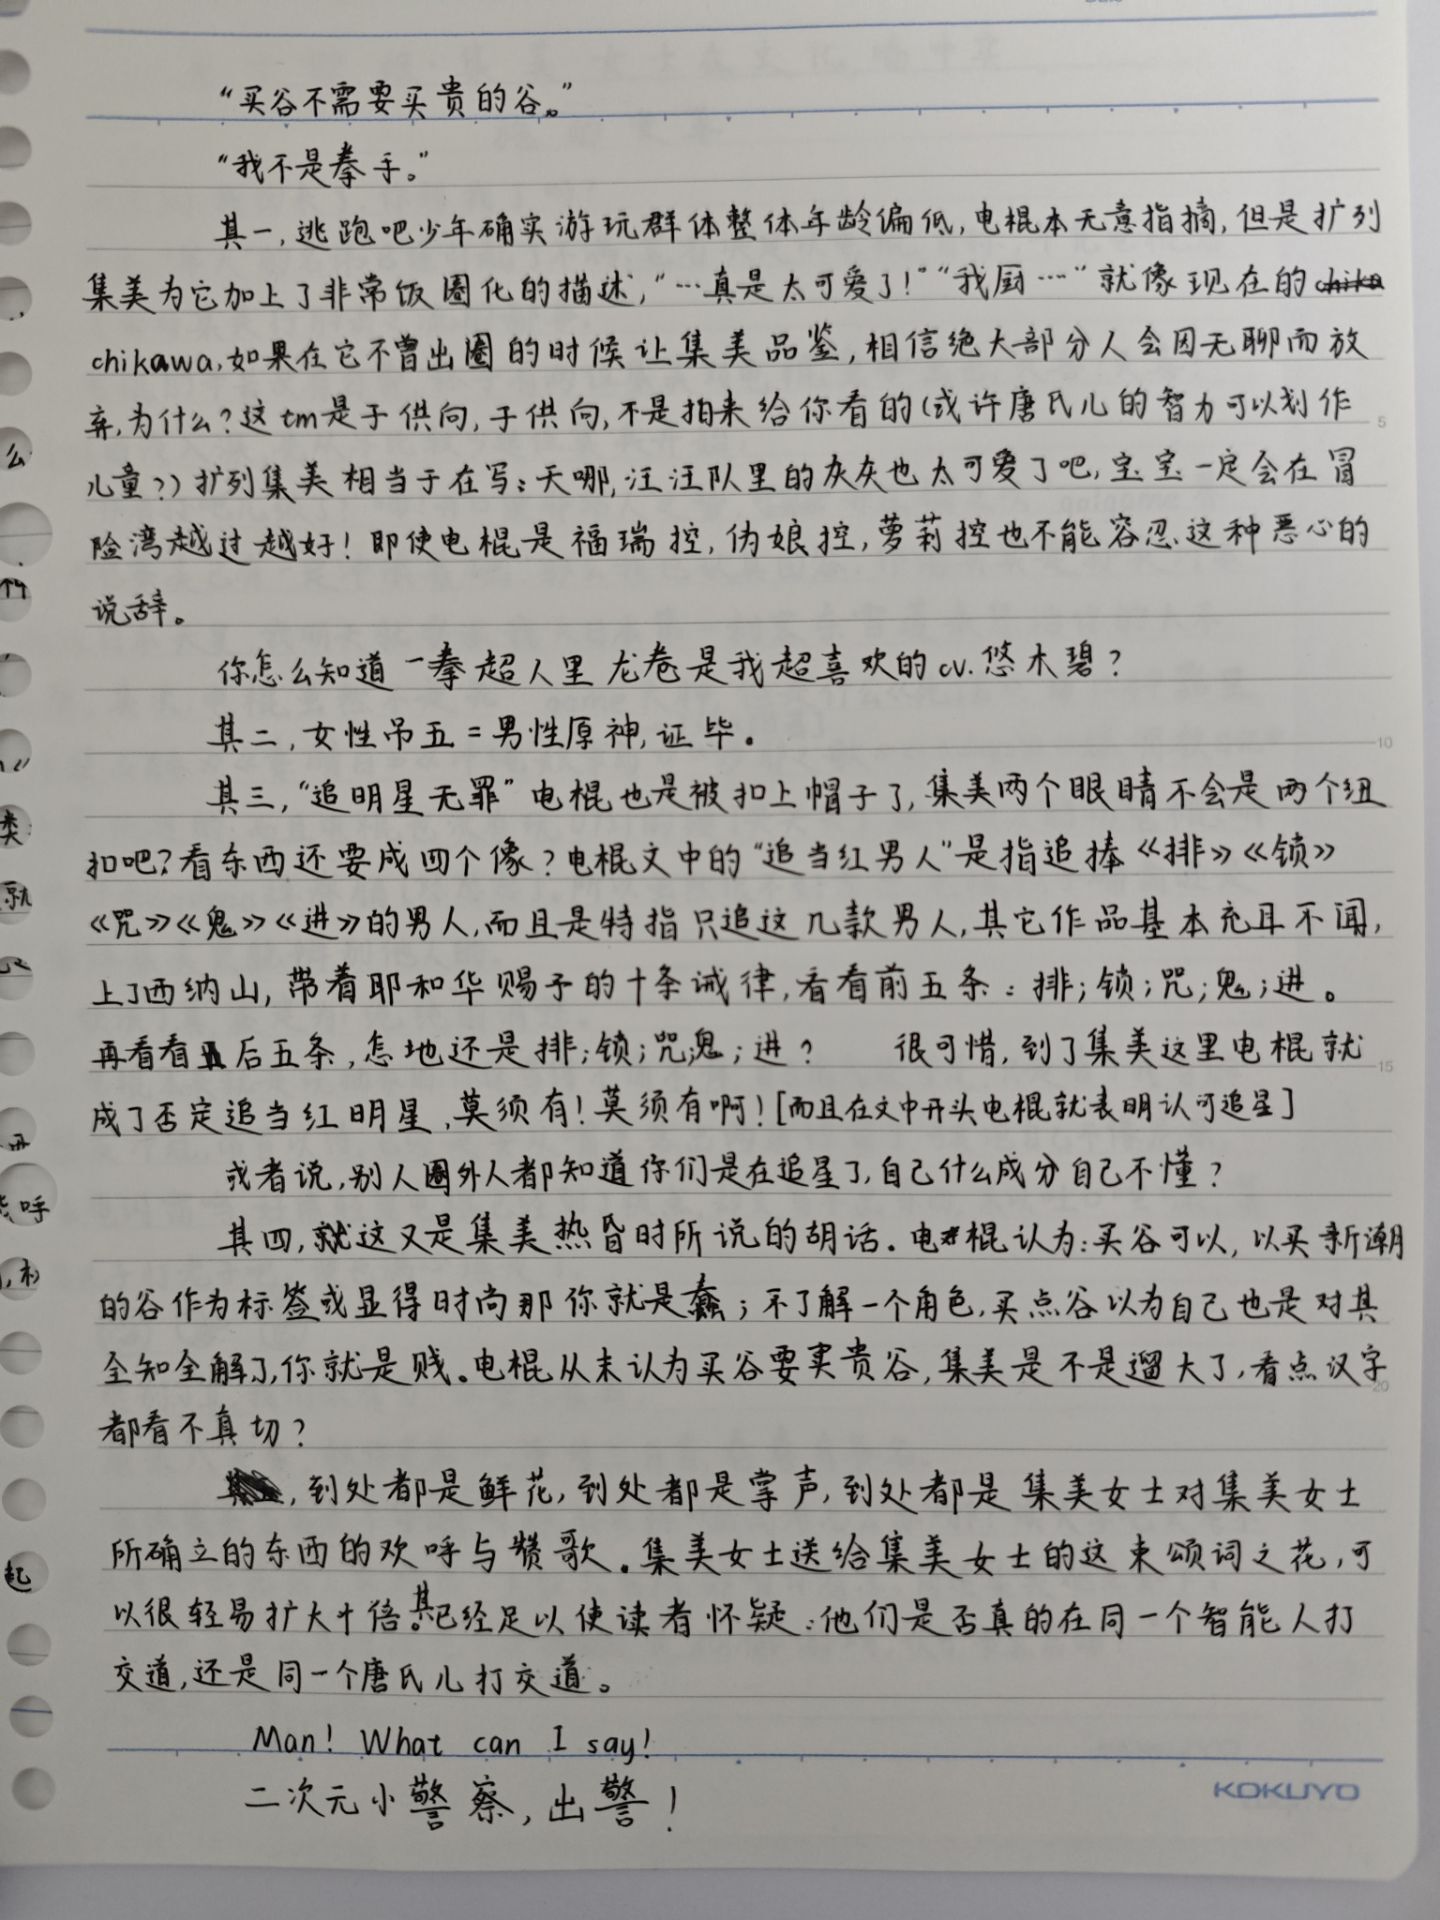 “买谷不需要买贵的谷。”
“我不是拳手。”
其一，逃跑吧少年确实游玩群体整体年龄偏低，电棍本无意指摘，但是扩列
集美为它加上了非常饭圈化的描述，“…真是太可爱了！”“我厨…”就像现在的
chikawa，如果在它不曾出圈的时候让集美品鉴，相信绝大部分人会因无聊而放
弃，为什么？这tm是子供向，子供向，不是拍来给你看的（或许唐氏儿的智力可以划作
儿童？）扩列集美相当于在写：天哪，汪汪队里的灰灰也太可爱了吧，宝宝一定会在冒
险湾越过越好！即使电棍是福瑞控，伪娘控，萝莉控也不能容忍这种恶心的
说辞。
你怎么知道一拳超人里龙卷是我超喜欢的cv.悠木碧？
其二，女性吊五=男性原神，证毕。
其三，“追明星无罪”电棍也是被扣上帽子了，集美两个眼睛不会是两个纽
扣吧？看东西还要成四个像？电棍文中的“追当红男人”是指追捧《排》《锁》
《咒》《鬼》《进》的男人，而且是特指只追这几款男人，其它作品基本充耳不闻，
上了西纳山，带着耶和华赐予的十条诫律，看看前五条：排；锁；咒；鬼；进。
再看看后五条，怎地还是排；锁；咒；鬼；进？ 很可惜，到了集美这里电棍就
成了否定追当红明星，莫须有！莫须有啊！[而且在文中开头电棍就表明认可追星]
或者说，别人圈外人都知道你们是在追星了，自己什么成分自己不懂？
其四，就这又是集美热昏时所说的胡话。电棍认为：买谷可以，以买新潮
的谷作为标签或显得时尚那你就是蠢；不了解一个角色，买点谷以为自己也是对其
全知全解了，你就是贱。电棍从未认为买谷要买贵谷，集美是不是遛大了，看点汉字
都看不真切？
，到处都是鲜花，到处都是掌声，到处都是集美女士对集美女士
所确立的东西的欢呼与赞歌。集美女士送给集美女士的这束颂词之花，可
以很轻易扩大十倍。其已经足以使读者怀疑：他们是否真的在同一个智能人打
交道，还是同一个唐氏儿打交道。
Man! What can I say!
二次元小警察，出警！
KOKUYO